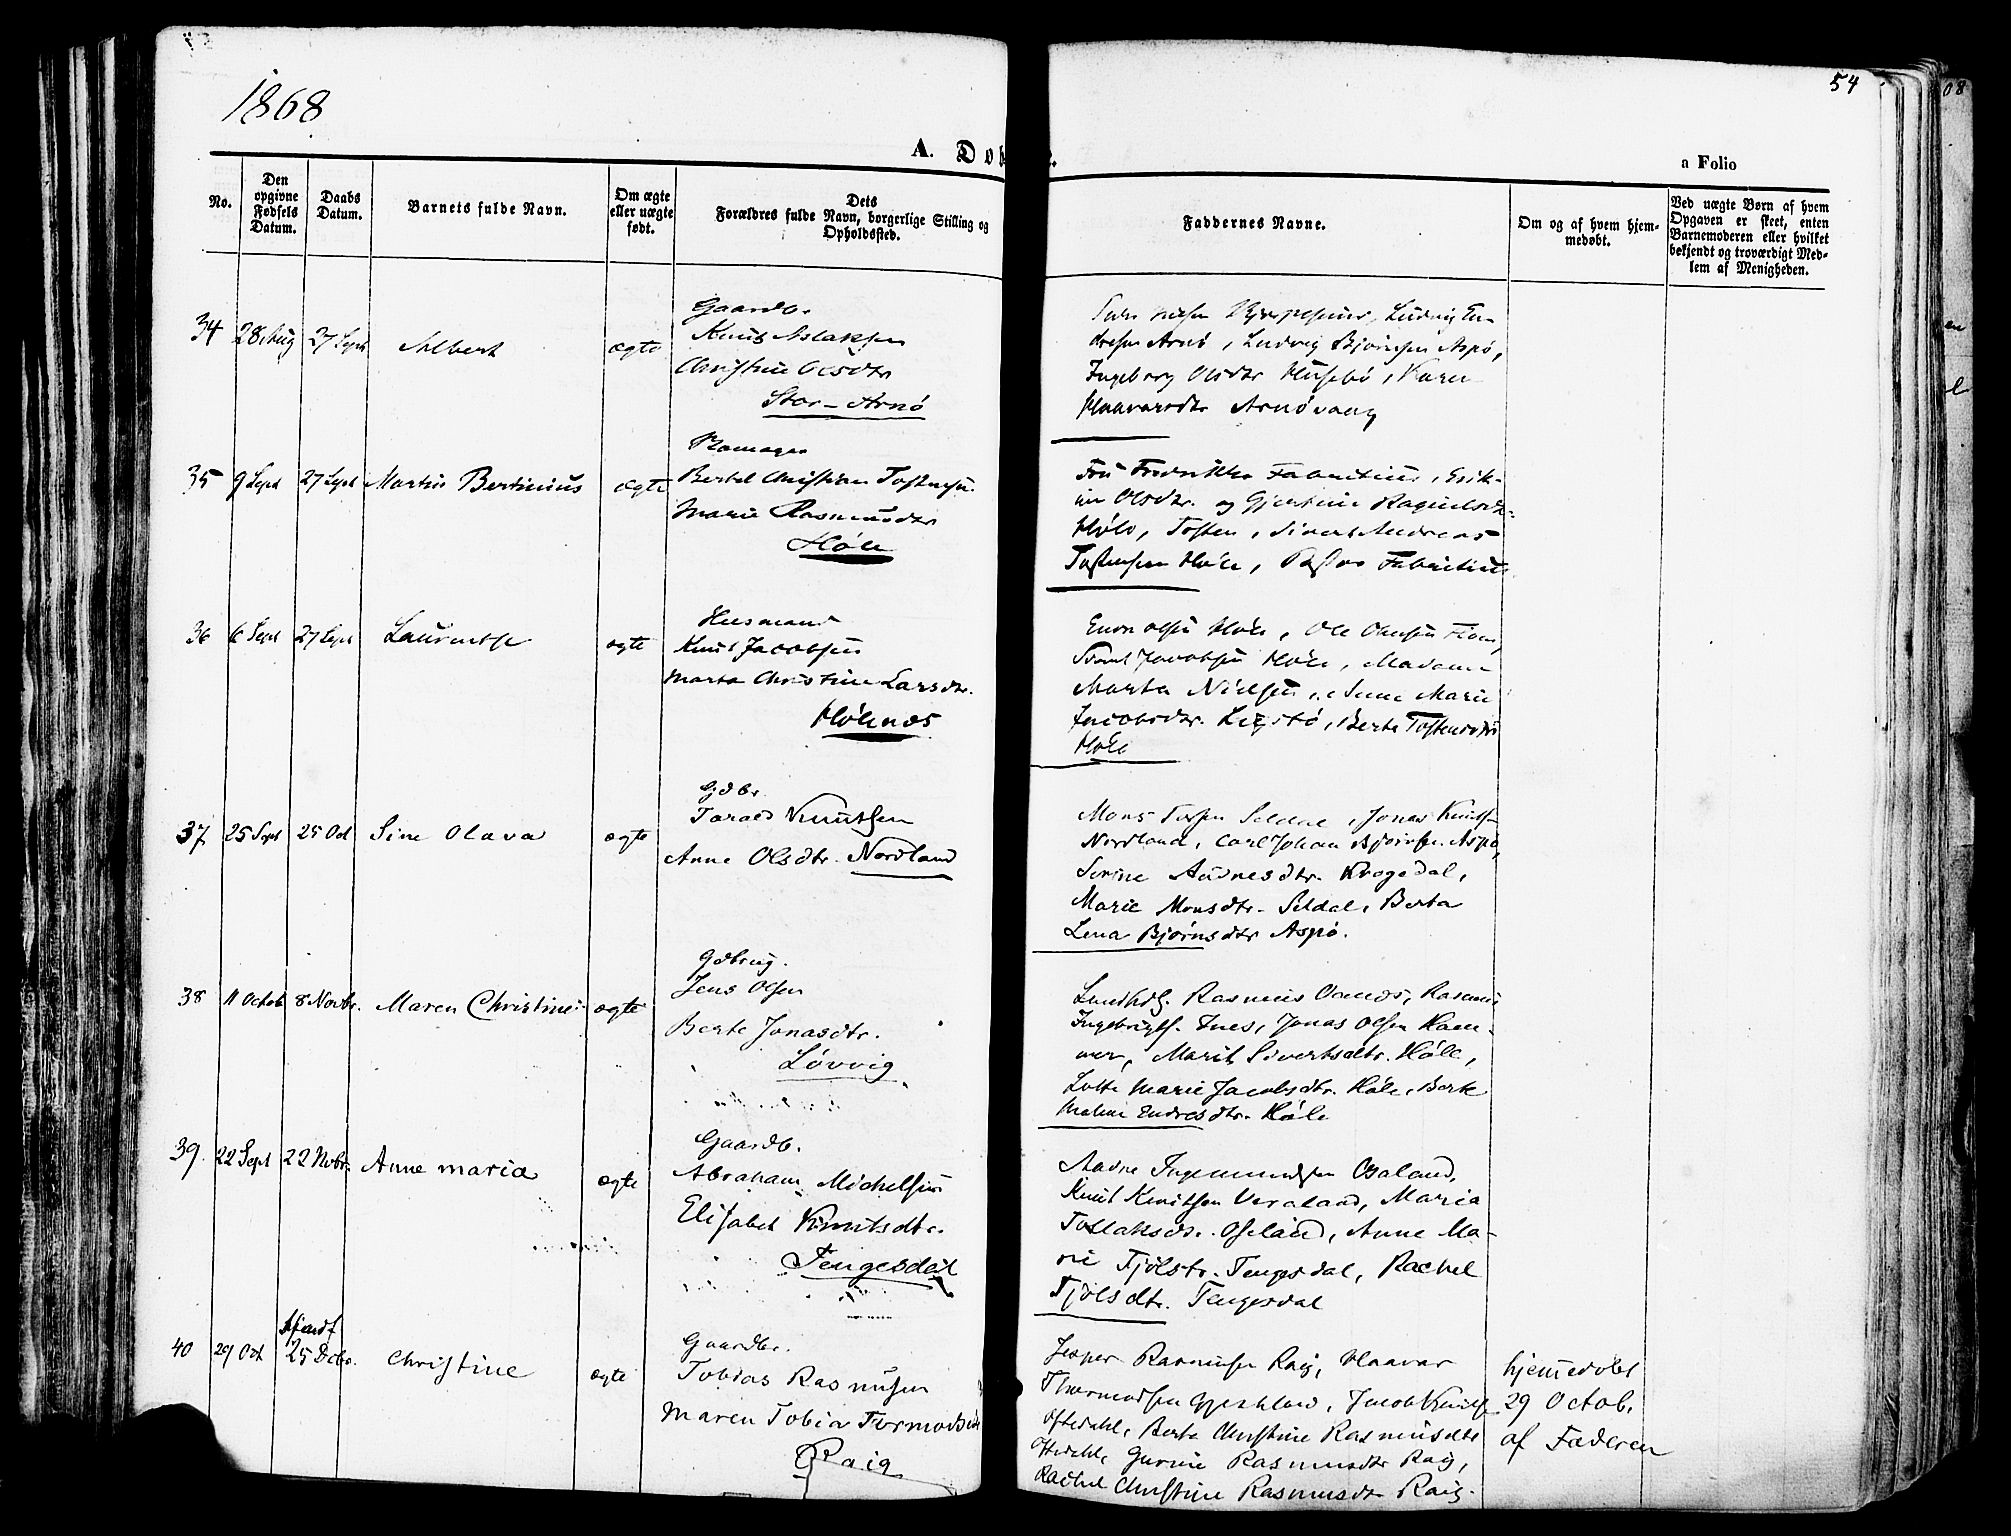 1868
54
A. Døb
a Folio
No.
Den opgivne Fødsels Datum.
Daabs Datum.
Barnets fulde Navn.
Om ægte eller uægte født.
Dets Forældres fulde Navn, borgerlige Stilling og Opholdssted.
Faddernes Navne.
Om og af hvem hjemmedøbt.
Ved uægte Børn af hvem Opgaven er skeet, enten Barnemoderen eller hvilket bekjendt og troværdigt Medlem af Menigheden.
34 28 Aug 27 Sept Albert ægte
Gaardb.
Knut Aslaksen
Christine Olsdtr
Stor-Arnø
Ludvig En-
dresen Arnø, Ludvig Bjørnsen Aspø,
Ingeborg Olsdtr Husebø, Karen
Haavarsdtr Arnøvaag
35 9 Sept 27 Sept Martin Bertinius ægte
Bertel Christian Tostensen
Marie Rasmusdtr
Høle
Fru Fredrikke Fabritius, Erik-
ine Olsdtr. og Gjertine Ragnilsdtr
Høle, Tosten, Sivert Andreas
Tostensen Høle, Pastor Fabritius
36 6 Sept 27 Sept Laurentse ægte
Husmand
Knut Jacobsen
Marta Christine Larsdtr.
Hølenæs
Enok Olsen Høle, Ole Olsen
Jacobsen Høle, Madame
Marta Nielsen, Anne Marie
Jacobsdtr. , Berte Tostensdtr
Høle
37 25 Sept 25 Oct Sine Olava ægte
Gdbr.
Tarald Knutsen
Anne Olsdtr. Nordland
Mons Seldal, Jonas Knuts
Nordland, Carl Johan Bjørnsen Aspø,
Serine Andresdtr. Krogedal,
Marie Monsdtr. Seldal, Berta
Lena Bjørnsdtr Aspø.
38 11 Octob 8 Novbr. Maren Christine ægte
Gdbrug.
Jens Olsen
Berte Jonasdtr.
Løvvig
Landhdl. Rasmus , Rasmus
Ingebrigts. Ims, Jonas Olsen Ham-
mer, Marit Sivertsdtr. Høle,
Lotte Marie Jacobsdtr. Høle, Berte
Malene Endresdtr. Høle
39. 22 Sept 22 Nobr. Anne Maria ægte
Gaardb.
Abraham Michelsen
Elisabet Knutsdtr.
Tengesdal
Aadne Ingemundsen Osaland,
Knut Knutsen Veraland, Maria
Tollaksdr. Oseland, Anne Ma-
rie Tjølsdtr. Tengesdal, Rachel
Tjølsdtr. Tengesdal
40 29 Oct 25 Dcbr. Christine ægte
Gaardbr.
Tobias Rasmusen
Maren Tobia Tormods
Raig
Jesper Rasmusen Raig, Haavar
Thormodsen , Jacob Knuts
Oftedahl, Berta Christine Rasmusdtr
Oftedahl, Gurine Rasmusdtr Raig,
Rachel Christine Rasmusdtr Raig.
hjemmedøbt
29 Octob.
af Faderen